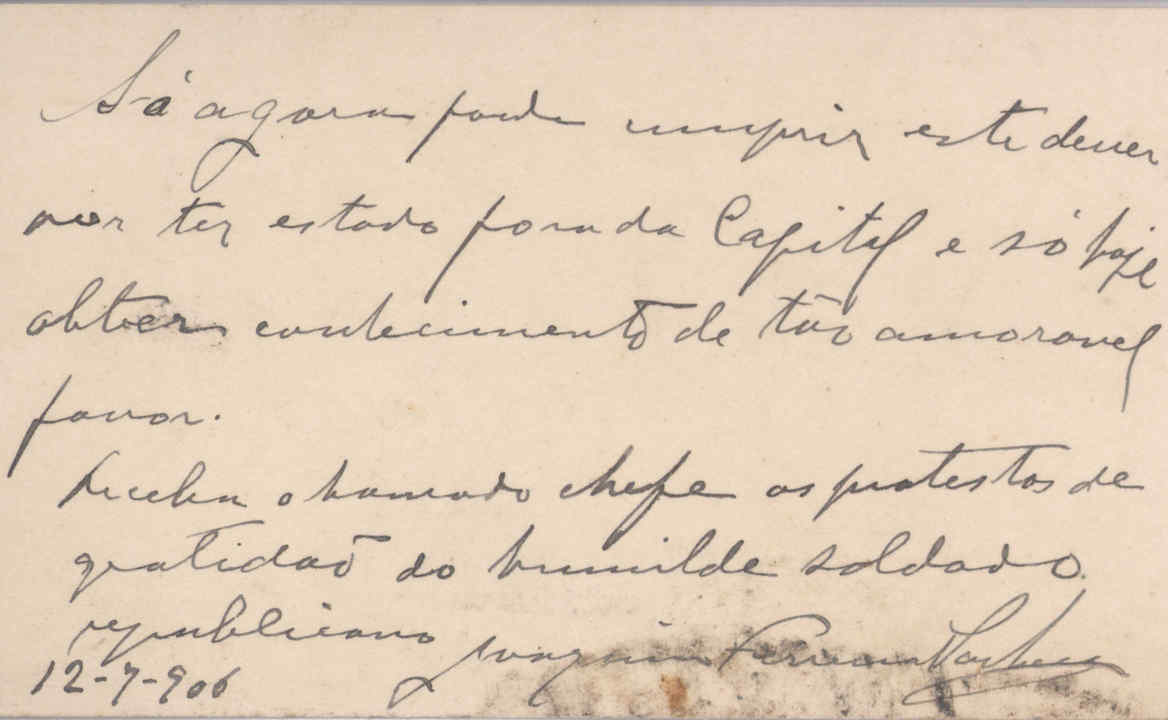 Só agora pude cumprir este dever
por ter estado fora da Capital e só hoje
obter conhecimento de tão amoravel
favor.
Receba o honrado chefe os protestos de
gratidaõ do humilde soldado
republicano Joaquim Pacheco
12-7-906